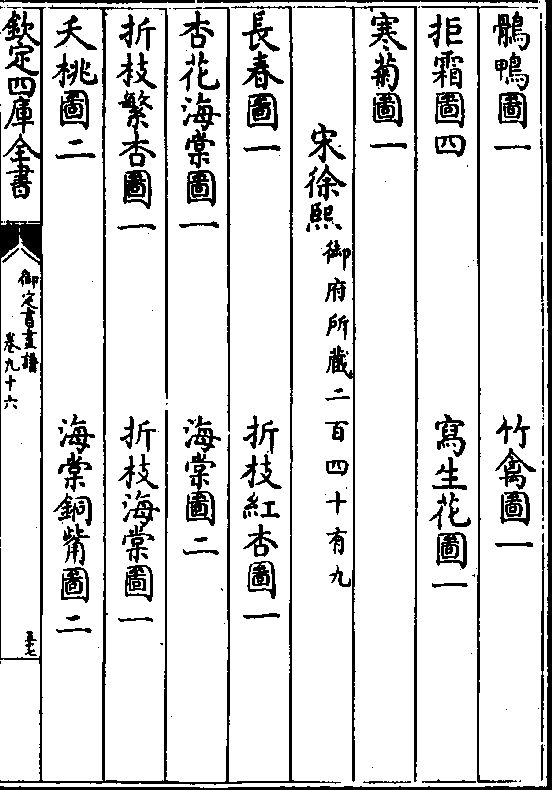 鶻鴨圖一　竹禽圖一
拒霜圖四　寫生花圖一
寒菊圖一
宋徐熙御府所藏二百四十有九
長春圖一　折枝紅杏圖一
杏花海棠圖一　海棠圖二
折枝繁杏圖一　折枝海棠圖一
夭桃圖二　海棠銅觜圖二
欽定四庫全書　御定書畫譜　卷九十六　五七